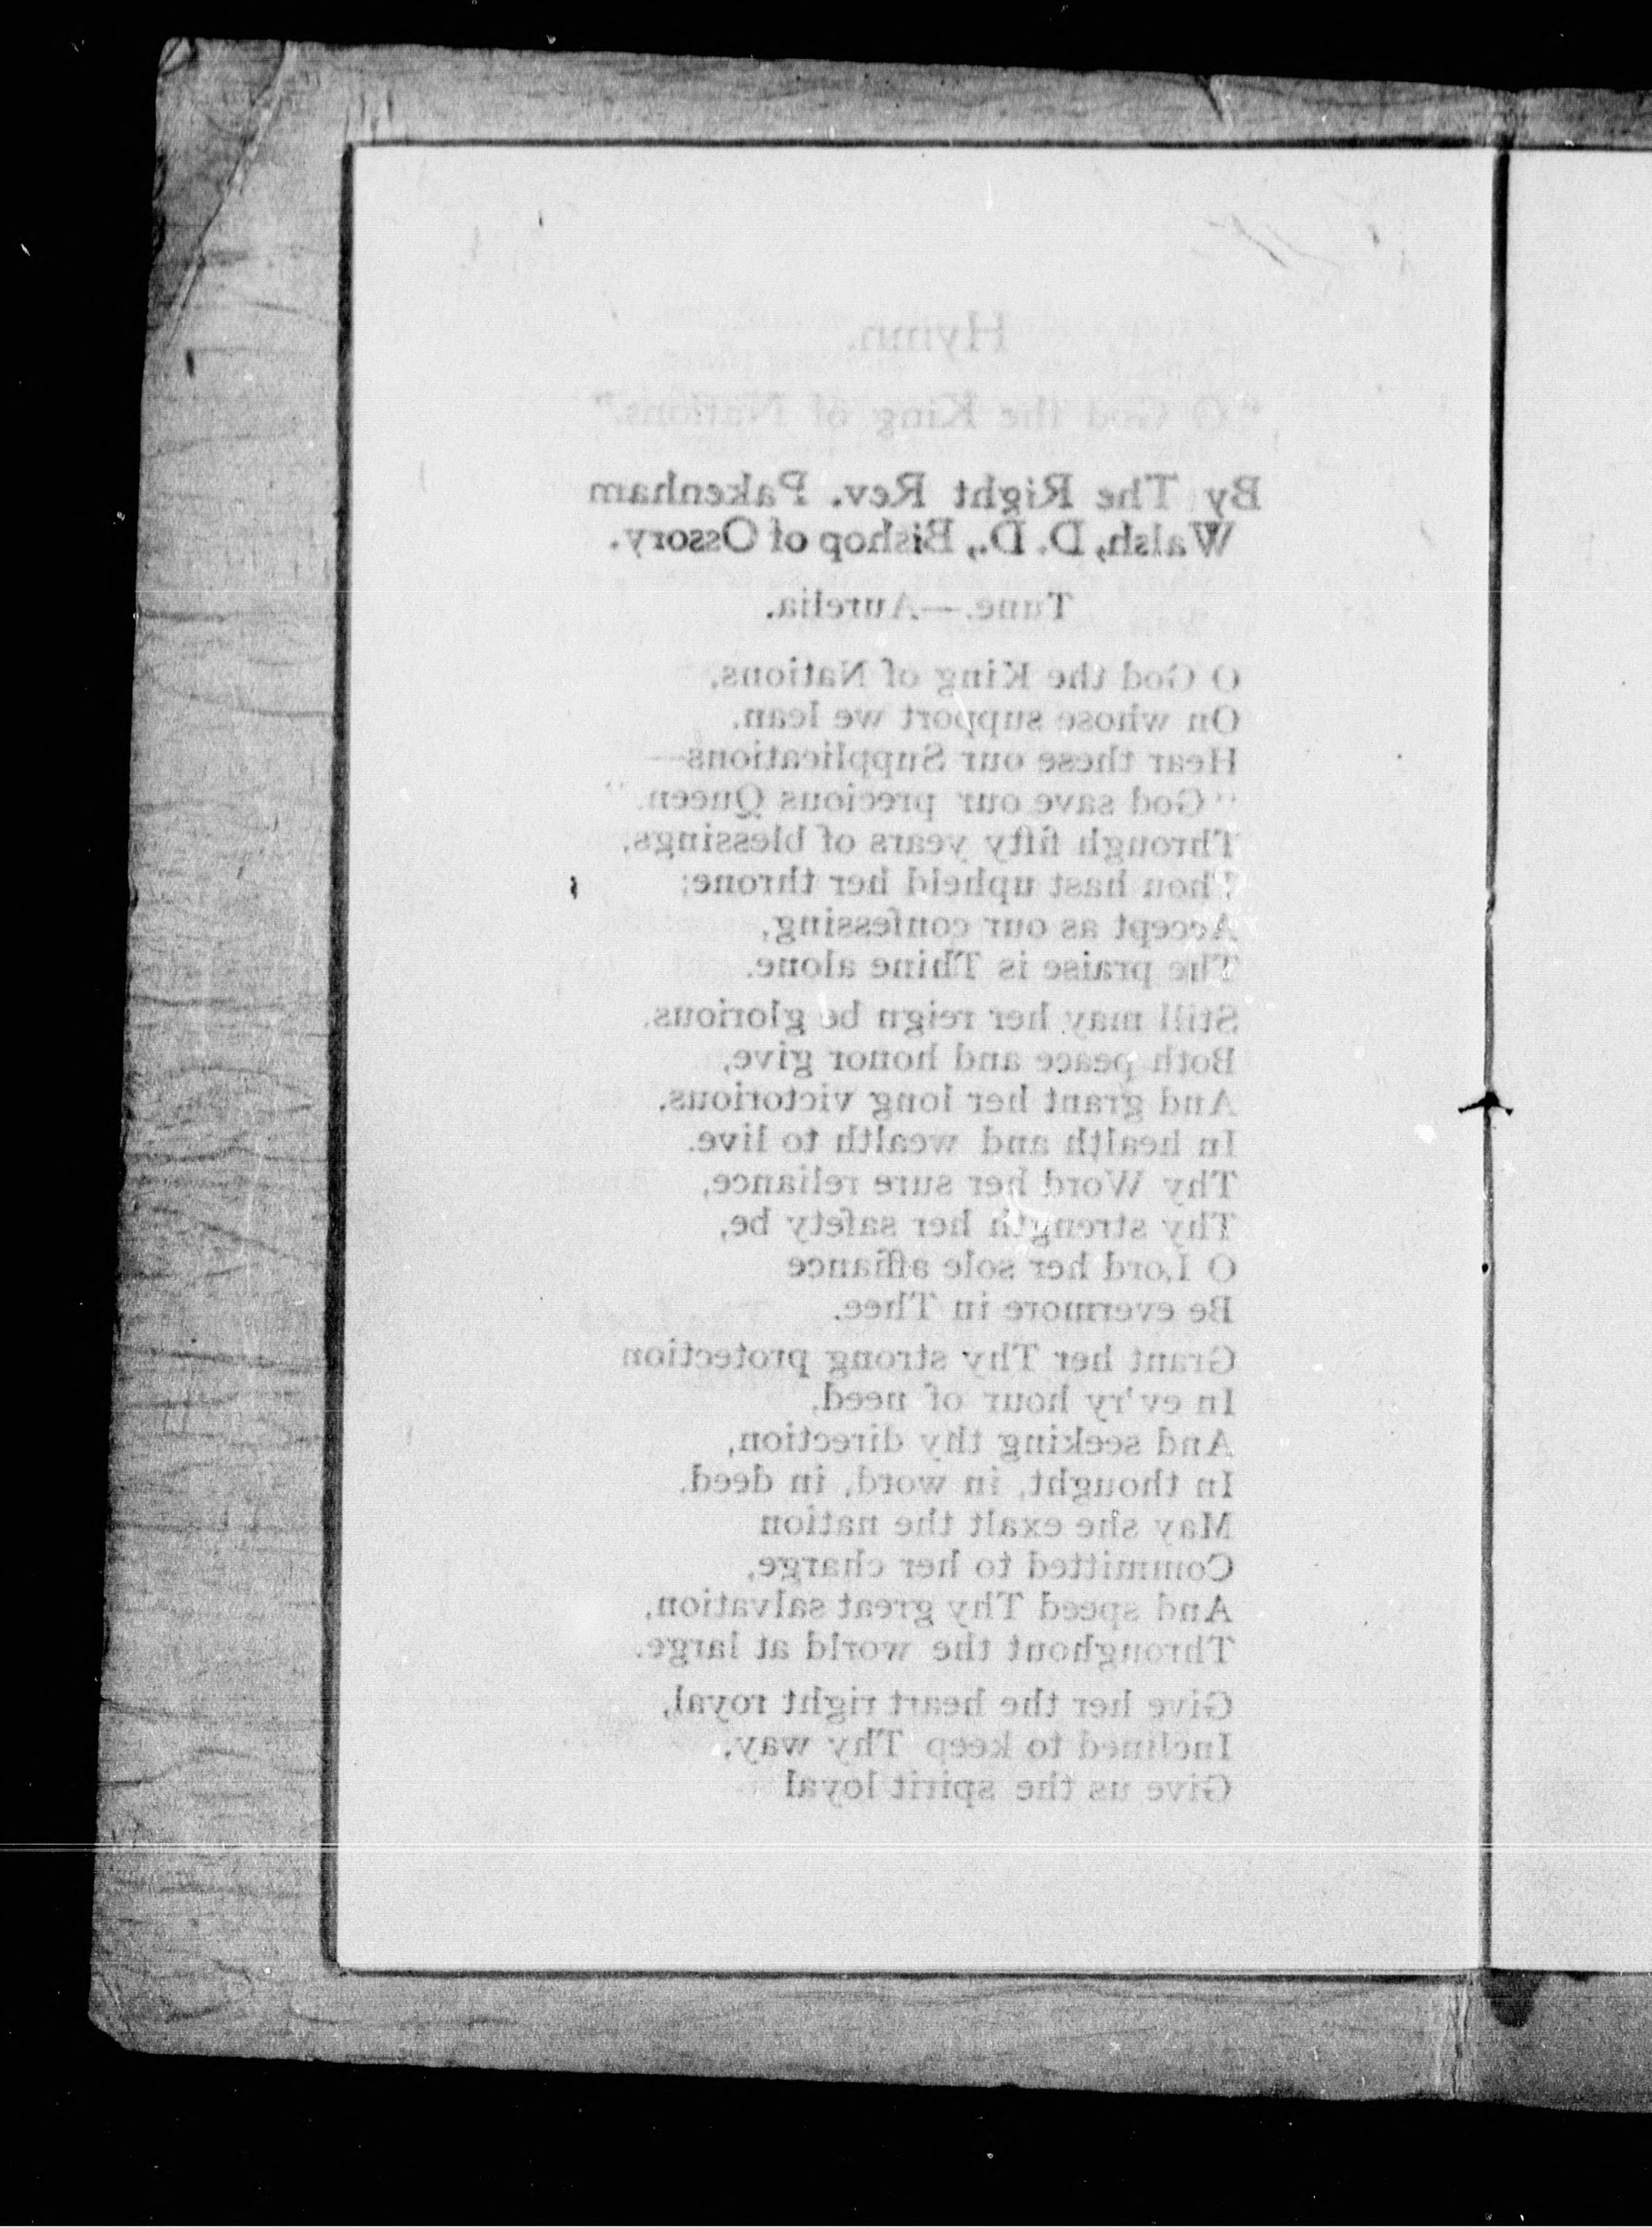 Hymn.
"O God the King of Nations."
By The Right Rev. Pakenham
Walsh, D. D., Bishop of Ossory.
Tune.—Aurelia.
O God the King of Nations,
On whose support we lean.
Hear these our Supplications—
"God save our precious Queen."
Through fifty years of blessings,
Thou hast upheld her throne;
Accept as our confessing,
The praise is Thine alone.
Still may her reign be glorious,
Both peace and honor give,
And grant her long victorious,
In health and wealth to live.
Thy Word her sure reliance,
Thy strength her safety be,
O Lord her sole affiance
Be evermore in Thee.
Grant her Thy strong protection
In ev'ry hour of need,
And seeking thy direction,
In thought, in word, in deed.
May she exalt the nation
Committed to her charge,
And speed Thy great salvation,
Throughout the world at large.
Give her the heart right royal,
Inclined to keep Thy way,
Give us the spirit loyal